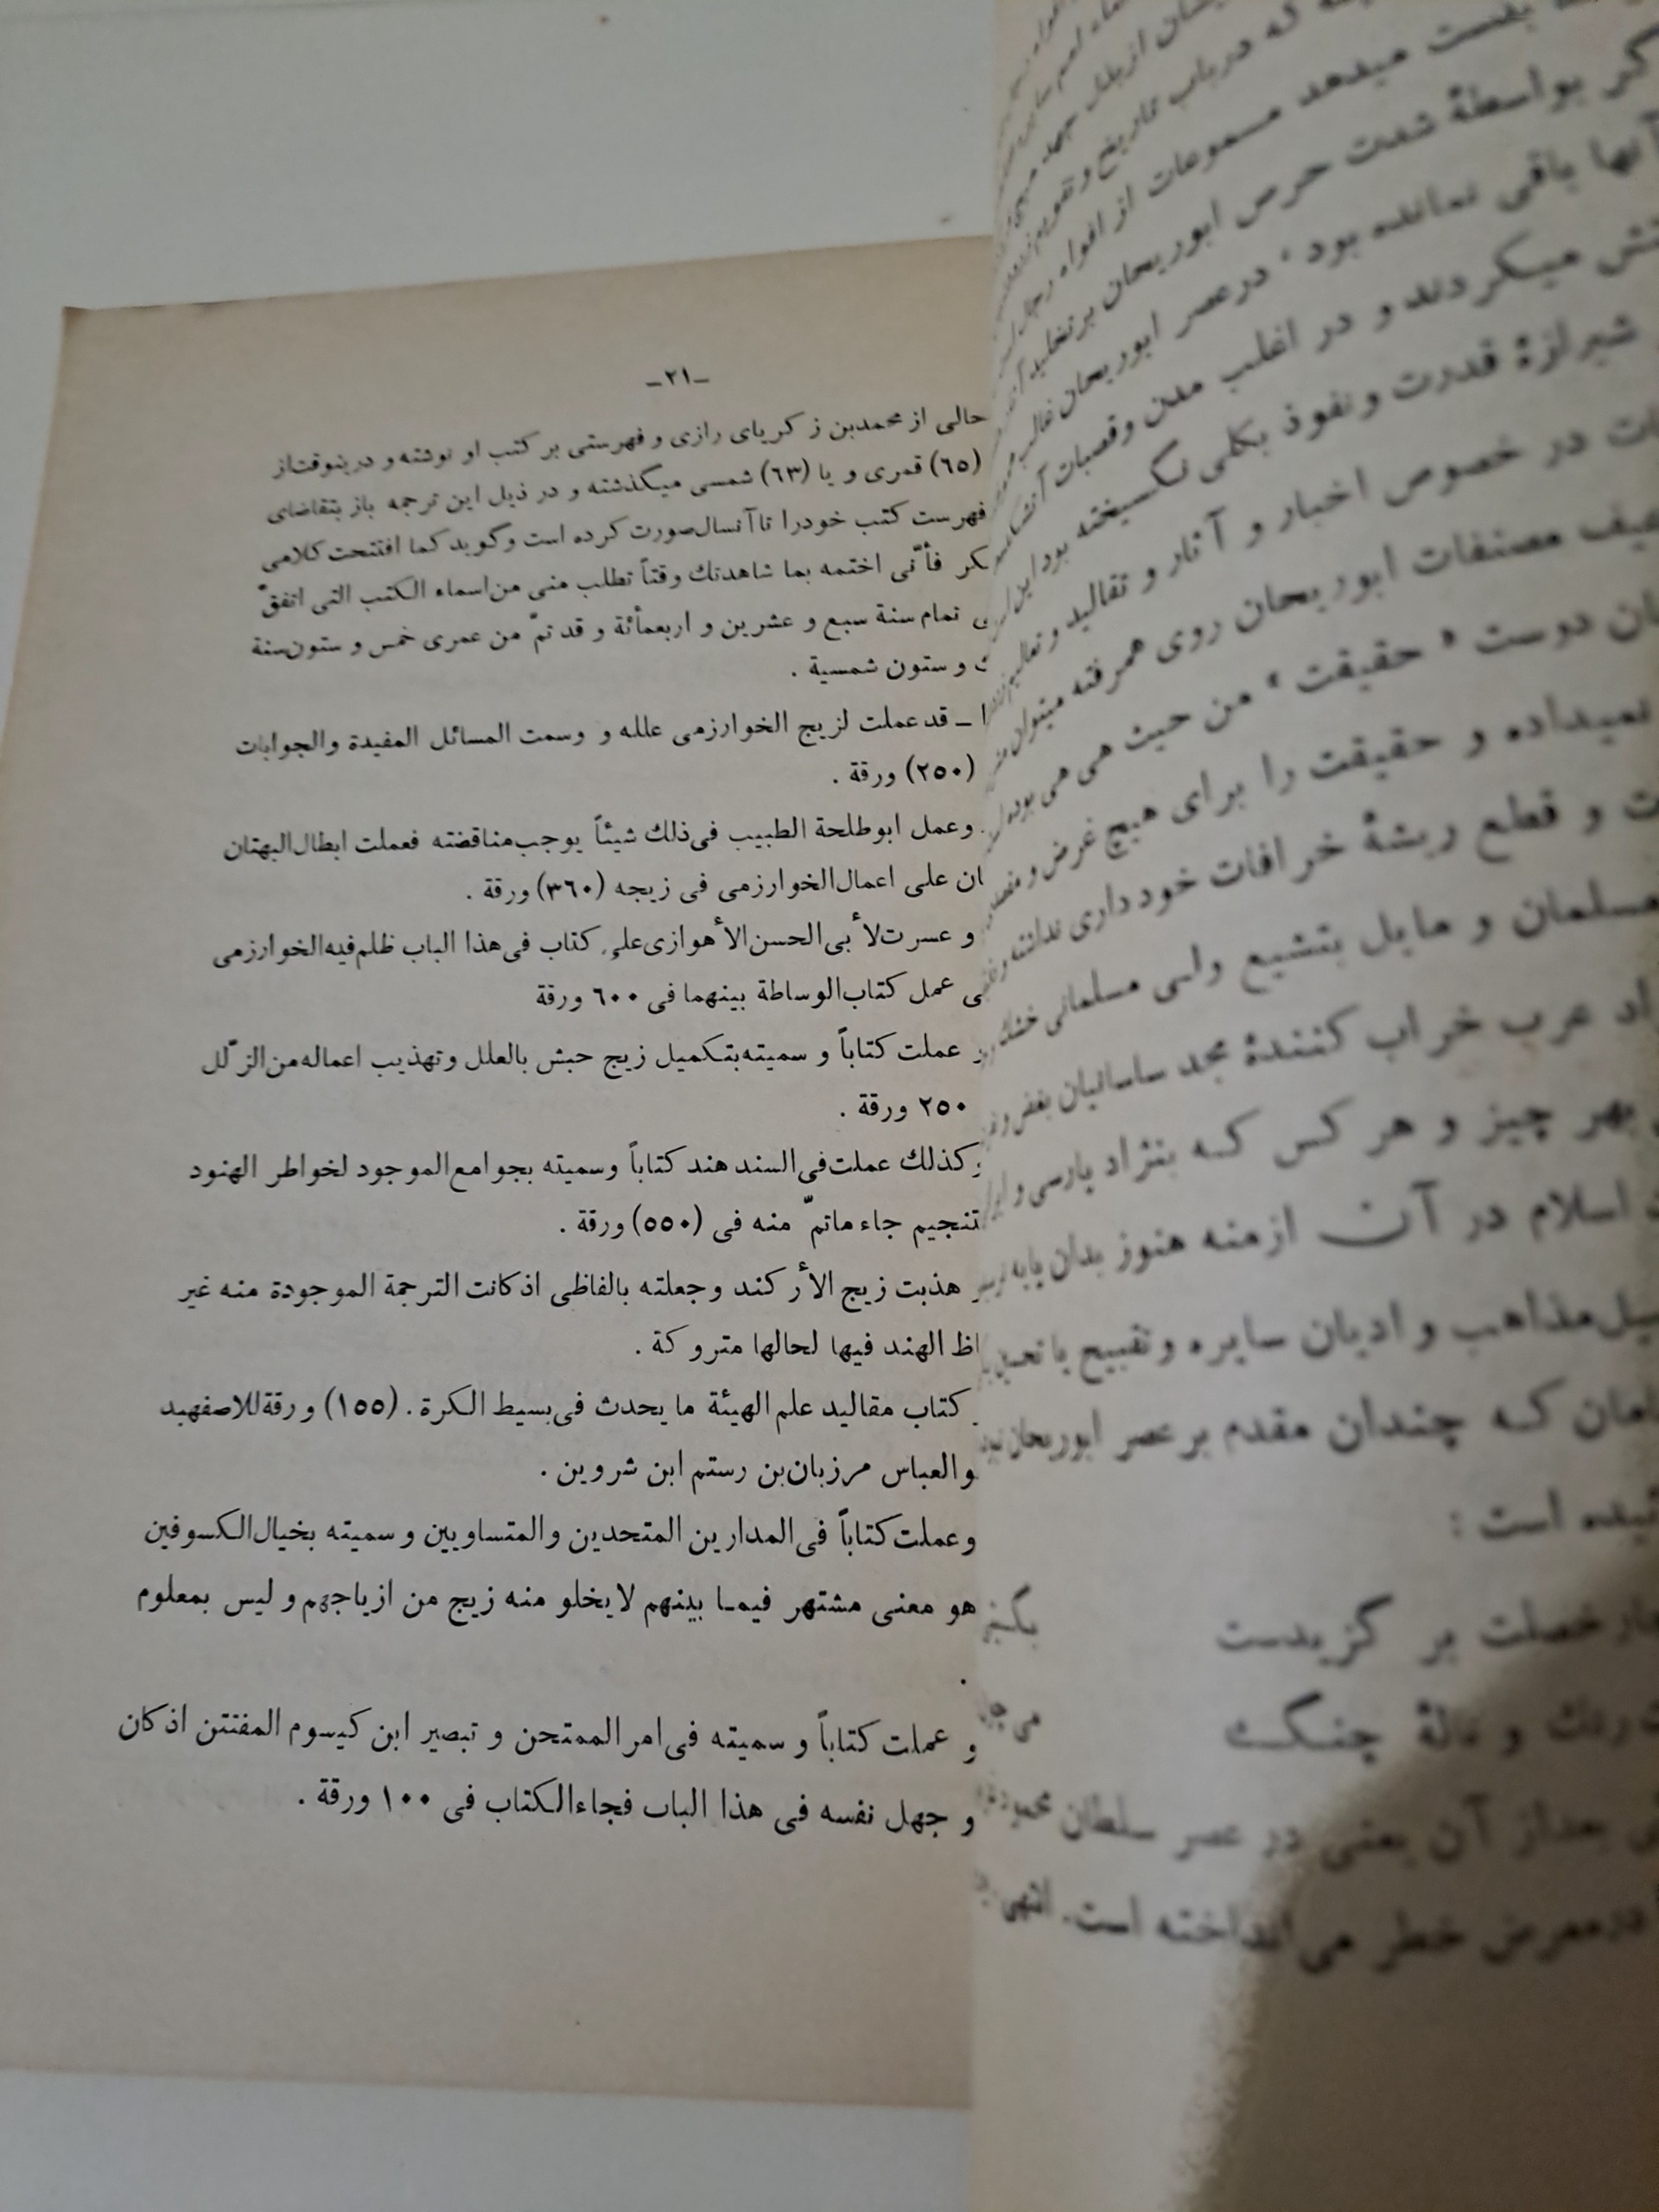 ـ٢١ـ
حالی از محمدبن زکریای رازی و فهرستی بر کتب او نوشته و درینوقت از
(٦٥) قمری و یا (٦٣) شمسی میگذشته و در ذیل این ترجمه باز بتقاضای
فهرست کتب خودرا تا آنسال صورت کرده است و گوید کما افتتحت کلامی
فأنّی اختمه بما شاهدتك وقتاً تطلب منی من اسماء الکتب التی اتفقّ
تمام سنة سبع و عشرین و اربعمأئة و قد تمّ من عمری خمس و ستون سنة
و ستون شمسیة .
ـ قد عملت لزیج الخوارزمی علله و وسمت المسائل المفیدة والجوابات
(٢٥٠) ورقة .
وعمل ابوطلحة الطبیب فی ذلك شیئاً یوجب مناقضته فعملت ابطال البهتان
علی اعمال الخوارزمی فی زیجه (٣٦٠) ورقة .
و عسرت لأبی الحسن الأهوازی علی کتاب فی هذا الباب ظلم فیه الخوارزمی
عمل کتاب الوساطة بینهما فی ٦٠٠ ورقة
عملت کتاباً و سمیته بتکمیل زیج حبش بالعلل و تهذیب اعماله من الزّلل
٢٥٠ ورقة .
کذلك عملت فی السند هند کتاباً وسمیته بجوامع الموجود لخواطر الهنود
جاء ماتمّ منه فی (٥٥٠) ورقة .
هذبت زیج الأرکند وجعلته بالفاظی اذ کانت الترجمة الموجودة منه غیر
الهند فیها لحالها متروکة .
کتاب مقالید علم الهیئة ما یحدث فی بسیط الکرة . (١٥٥) ورقة للاصفهبد
والعباس مرزبان بن رستم ابن شروین .
وعملت کتاباً فی المدارین المتحدین والمتساویین و سمیته بخیال الکسوفین
هو معنی مشتهر فیما بینهم لایخلو منه زیج من ازیاجهم و لیس بمعلوم
.
و عملت کتاباً و سمیته فی امر الممتحن و تبصیر ابن کیسوم المفتتن اذ کان
و جهل نفسه فی هذا الباب فجاء الکتاب فی ١٠٠ ورقة .
میدهد مسموعات از افواه
بواسطهٔ شدت حرص ابوریحان بر
آنها باقی نمانده بود ، در عصر ابوریحان
میکردند و در اغلب مدن و قصبات
شیرازهٔ قدرت و نفوذ بکلی نگسیخته بود
در خصوص اخبار و آثار و تقالید و
مصنفات ابوریحان روی همرفته میتوان
دوست « حقیقت » من حیث هی هی بود
نمیداده و حقیقت را برای هیچ غرض و
و قطع ریشهٔ خرافات خود داری نداشته
مسلمان و مایل بتشیع ولی مسلمانی خشك
عرب خراب کنندهٔ مجد ساسانیان بغض و
بهر چیز و هر کس که بنژاد پارسی و
اسلام در آن ازمنه هنوز بدان پایه
مذاهب و ادیان سایره و تقبیح یا
که چندان مقدم بر عصر ابوریحان
است :
خصلت بر گزیدست
و نالهٔ چنگ
می
بعد از آن یعنی در عصر سلطان محمود
در معرض خطر می انداخته است . انتهی